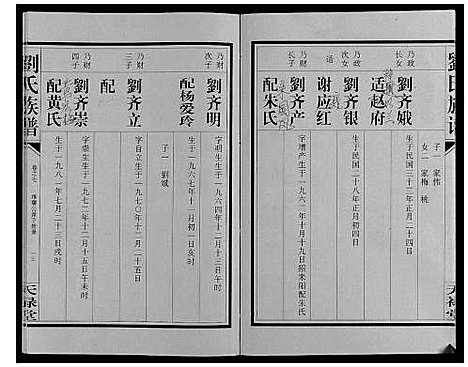 劉氏族譜
天禄堂
子一 家伟
女二 家梅 桃
乃政
长女
劉齐娥
适赵府
生于民国三十三年正月二十四日
乃政
次女
劉齐银
适
谢应红
生于民国二十八年正月初四日
乃财
长子
劉齐产
配朱氏
字增产生于一九六二年十月十九日
乃财
次子
劉齐明
配杨爱玲
字明生生于一九六四年十二月十三日午时
生于一九六七年十一月初一日亥时
子一 劉斌
乃财
三子
劉齐立
配
字自立生于一九七〇年十二月二十五日
乃财
四子
劉齐崇
配黄氏
字崇生生于一九七二年十二月十五日午未时
生于一九八一年七月二十三日戌时
劉氏族譜
卷之七
一三
天禄堂